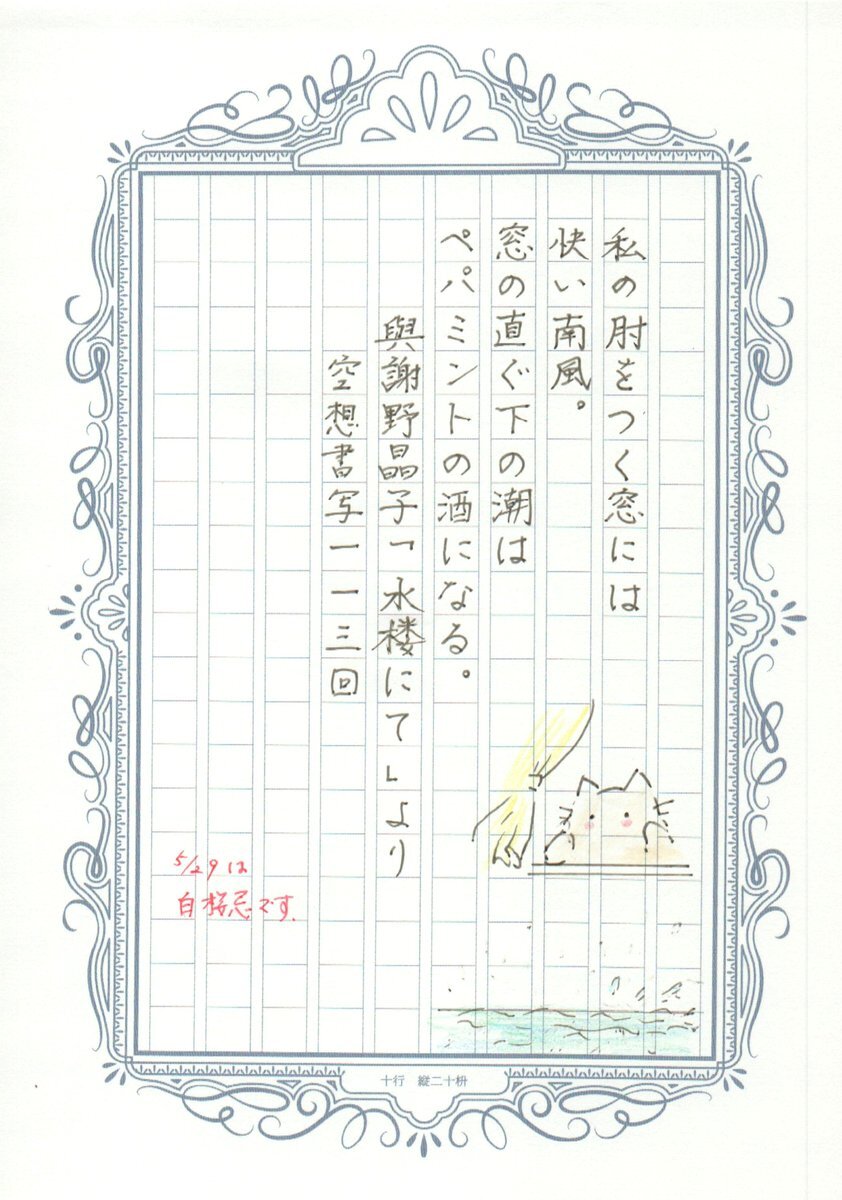 私の肘をつく窓には
快い南風。
窓の直ぐ下の潮は
ペパミントの酒になる。
與謝野晶子「水楼にて」より
空想書写一一三回
5/29は
白桜忌です.
十行 縦二十枡